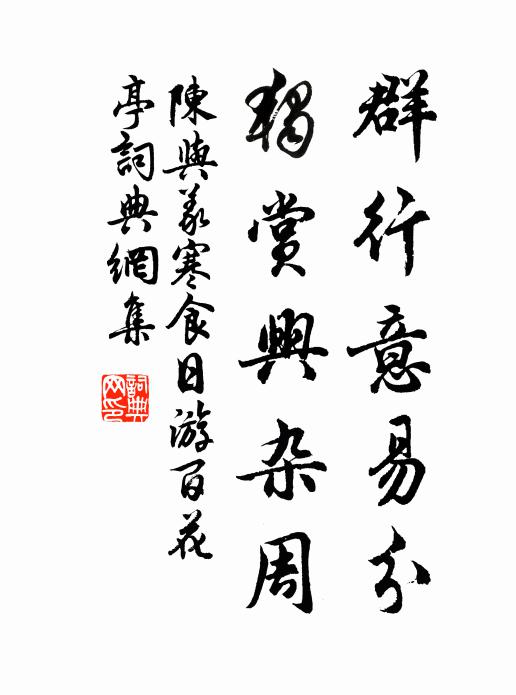 群行意易分
獨賞興杂周
陳與義寒食日游百花
亭詞典網集
詞典
网印